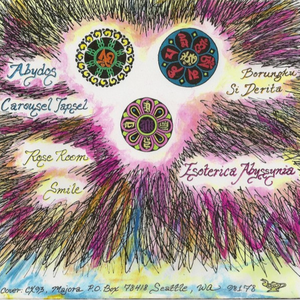 Abydos
Carousel Tapsel
Rose Room
Smile
Borungku
Si Derita
Esoterica Abyssynia
Cover: CX93, Majora P.O. Box 78418 Seattle, WA 98178